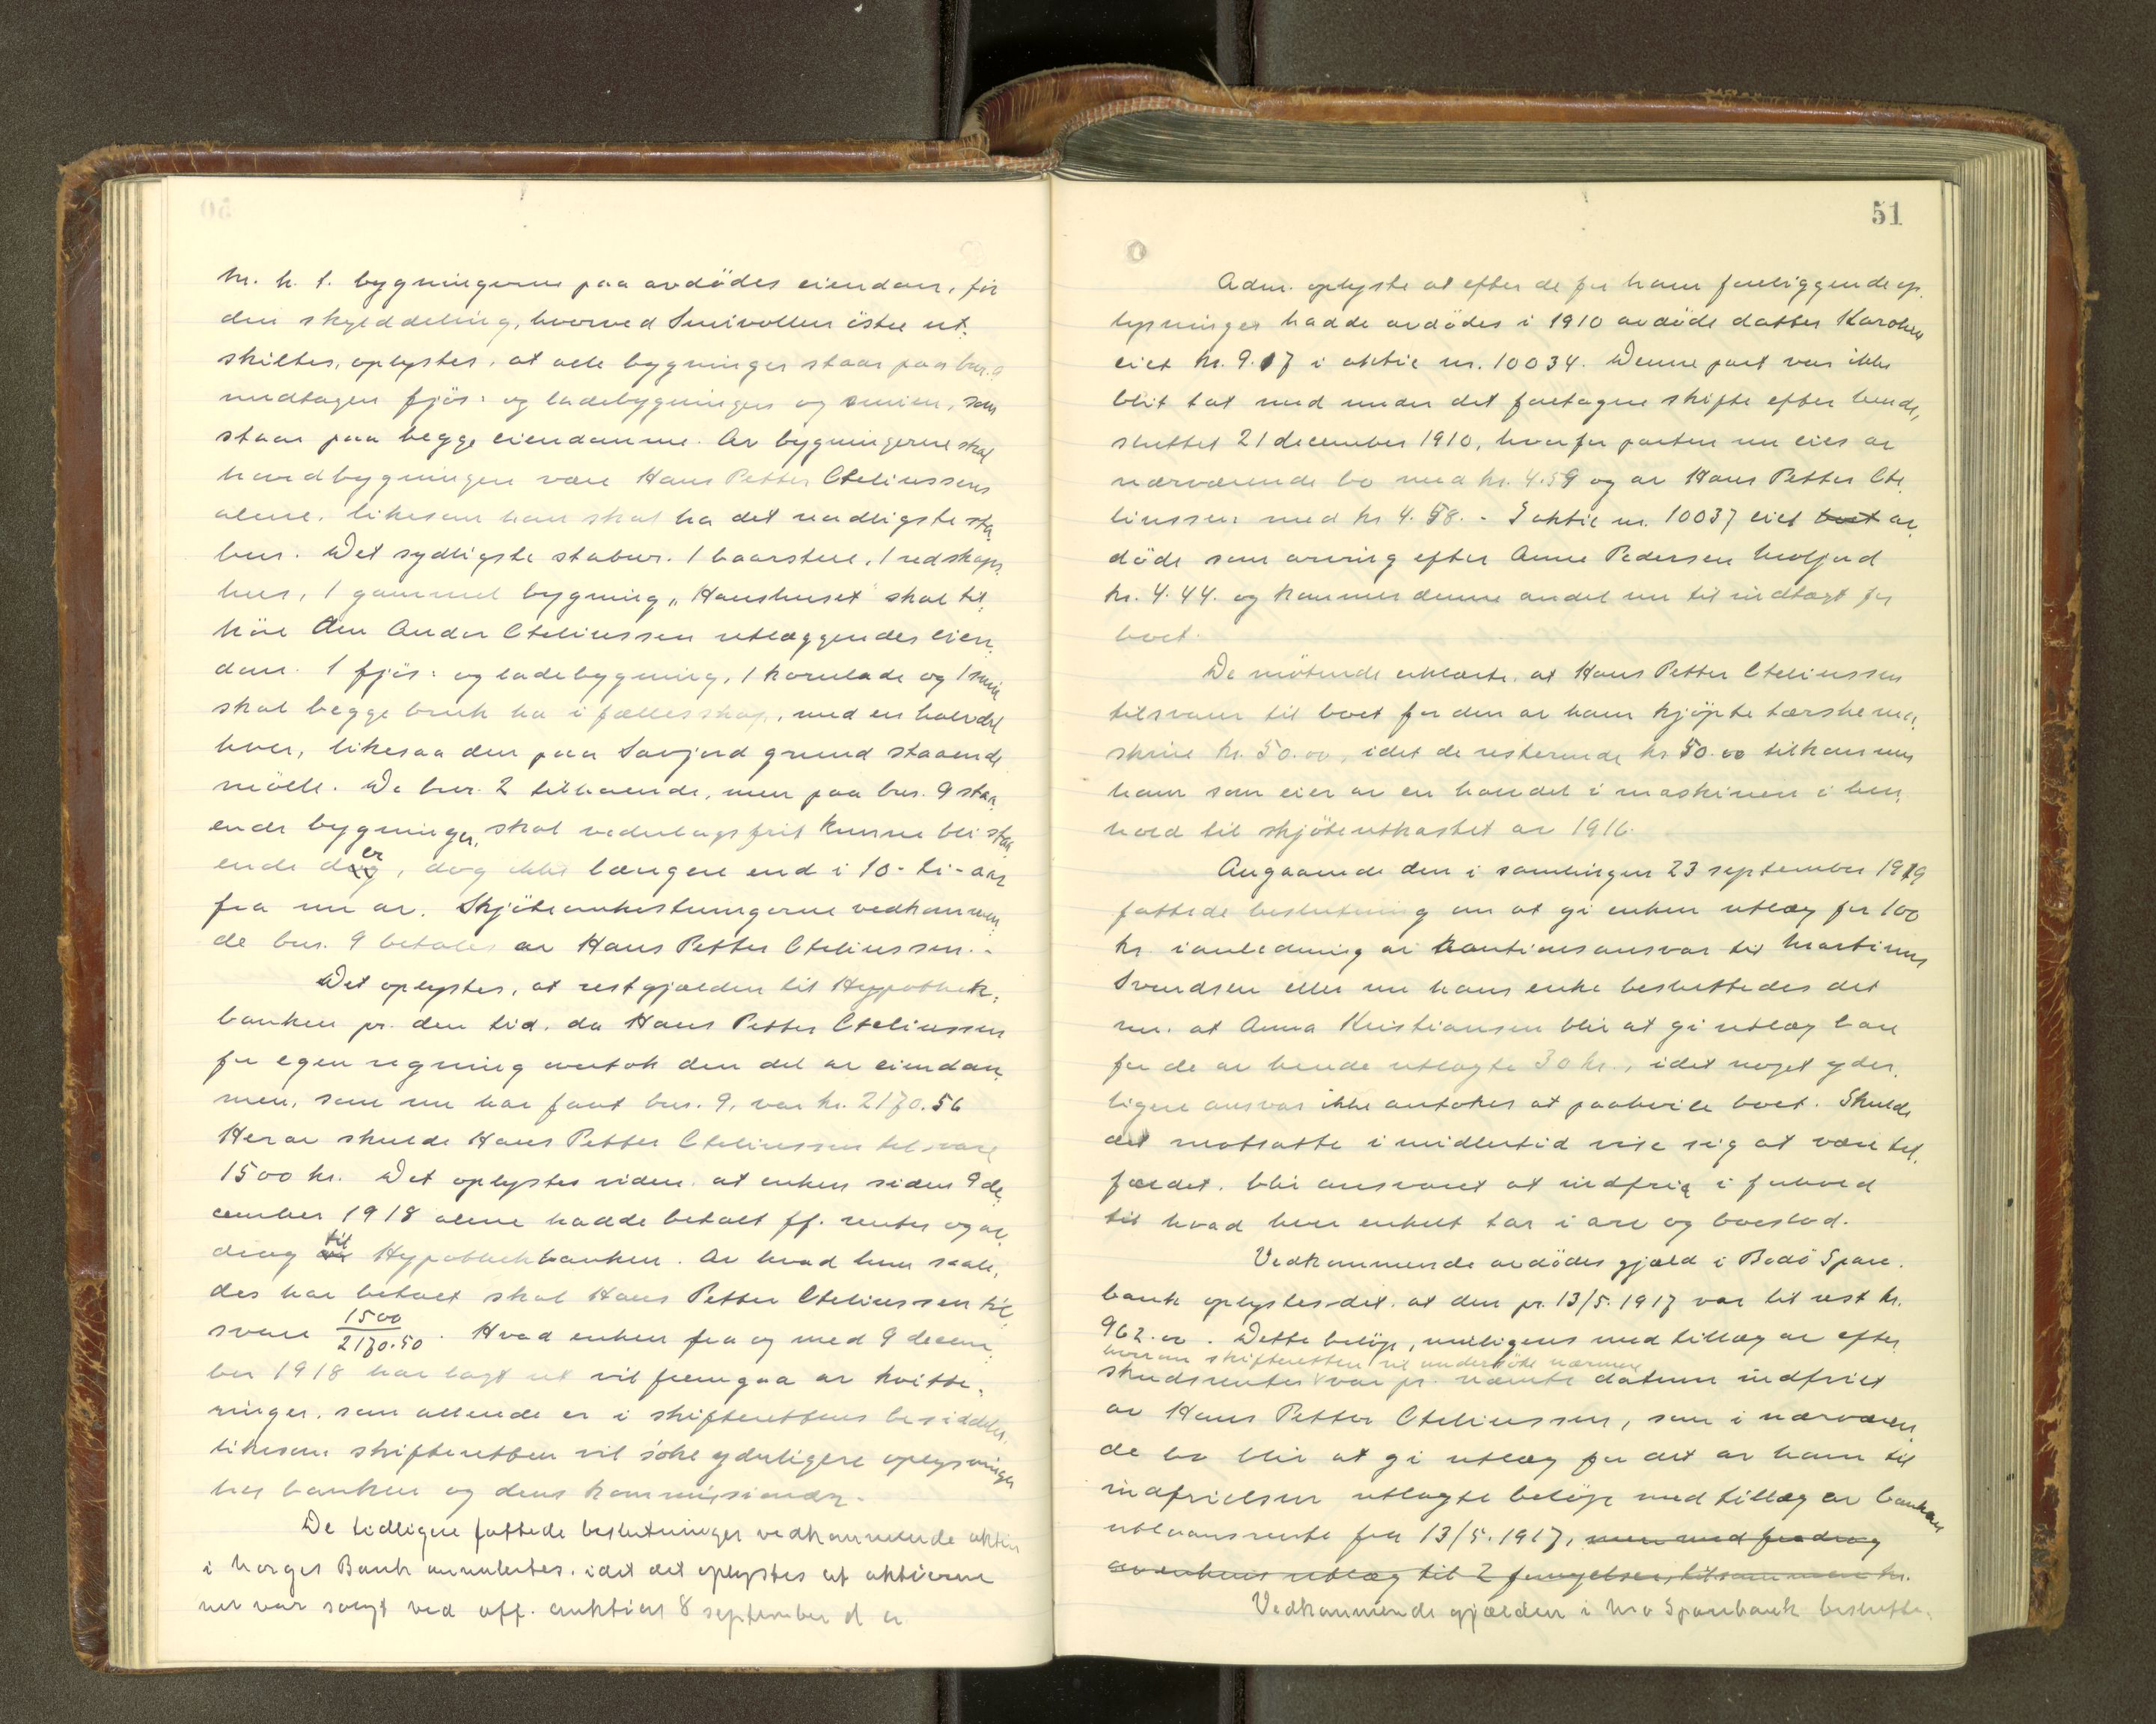 M. h. t. bygningerne paa avdødes eiendom, før
den skylddeling, hvorved Smivollen østre ut-
skiltes, oplystes, at alle bygninger staar paa br.nr. 9
undtagen fjøs- og ladebygningen og smien, som
staar paa begge eiendomme. Av bygningerne skal
hovedbygningen være Hans Petter Eteliussens
alene, likesom han skal ha det nordligste sta-
bur. Det sydligste stabur, 1 baarstue, 1 redskaps-
hus, 1 gammel bygning „Hanshuset" skal til-
høre den Andor Eteliussen utlæggendes eien-
dom. 1 fjøs- og ladebygning, 1 kornlade og 1 smie
skal begge bruk ha i fællesskap, med en halvdel
hver, likesaa den paa Savjord grund staaende
mølle. De br.nr. 2 tilhørende, men paa br.nr. 9 staa-
ende bygninger, skal vederlagsfrit kunne bli staa-
ende der, dog ikke længere end i 10 - ti - aar
fra nu av. Skjøteomkostningerne vedkommen-
de br.nr. 9 betales av Hans Petter Eteliussen. -
Det oplystes, at restgjælden til Hypothek-
banken pr. den tid, da Hans Petter Eteliussen
for egen regning overtok den del av eiendom-
men, som nu har faat br.nr. 9, var kr. 2170.56
Herav skulde Hans Petter Eteliussen tilsvare
1500 kr. Det oplystes videre at enken siden 9 de-
cember 1918 alene hadde betalt ff. renter og av-
drag til Hypothekbanken. Av hvad hun saale-
des har betalt skal Hans Petter Eteliussen til-
svare 1500/2170.50. Hvad enken fra og med 9 decem-
ber 1918 har lagt ut vil fremgaa av kvitte-
ringer, som allerede er i skifterettens besiddelse,
likesom skifteretten vil søke yderligere oplysninger
hos banken og dens kommissionær.
De tidligere fattede beslutninger vedkommende aktier
i Norges Bank annulertes, idet det oplystes at aktierne
nu var solgt ved off. auktion 8 september d. a.
51
Adm. oplyste at efter de for ham foreliggende op-
lysninger hadde avdødes i 1910 avdøde datter Karoline
eiet kr. 9.17 i aktie nr. 10034. Denne part var ikke
blit tat med under det foretagne skifte efter hende,
sluttet 21 december 1910, hvorfor parten nu eies av
nærværende bo med kr. 4.59 og av Hans Petter Ete-
liussen med kr 4.58. - I aktie nr. 10037 eiet boet av-
døde som arving efter Anne Pedersen Misfjord
kr. 4.44. og kommer denne andel nu til indtægt for
boet.
De møtende erklærte, at Hans Petter Eteliussen
tilsvarer til boet for den av ham kjøpte tærskema-
skine kr. 50.00, idet de resterende kr 50.00 tilkommer
ham som eier av en halvdel i maskinen i hen-
hold til skjøteutkastet av 1916.
Angaaende den i samlingen 23 september 1919
fattede beslutning om at gi enken utlæg for 100
kr. i anledning av kautionsansvar til Martinus
Svendsen eller nu hans enke besluttedes det
nu, at Anna Kristiansen blir at gi utlæg bare
for de av hende utlagte 30 kr., idet noget yder-
ligere ansvar ikke antokes at paahvile boet. Skulde
det motsatte imidlertid vise sig at være til-
fældet, blir ansvaret at indfri i forhold
til hvad hver enkelt tar i arv og boeslod.
Vedkommende avdødes gjæld i Bodø Spare-
bank oplystes det, at den pr. 13/5. 1917 var til rest kr.
962.00. Dette beløp, muligens med tillæg av efter-
hvorom skifteretten vil underhøre nærmere
skudsrenter var pr. nævnte datum indfriet
av Hans Petter Eteliussen, som i nærværen-
de bo blir at gi utlæg for det av ham til
indfrielsen utlagte beløp med tillæg av bankens
utlaansrente fra 13/5. 1917, men med fradrag
av enkens utlæg til 2 fornyelser, tilsammen kr.
Vedkommende gjælden i Mo Sparebank beslutte-